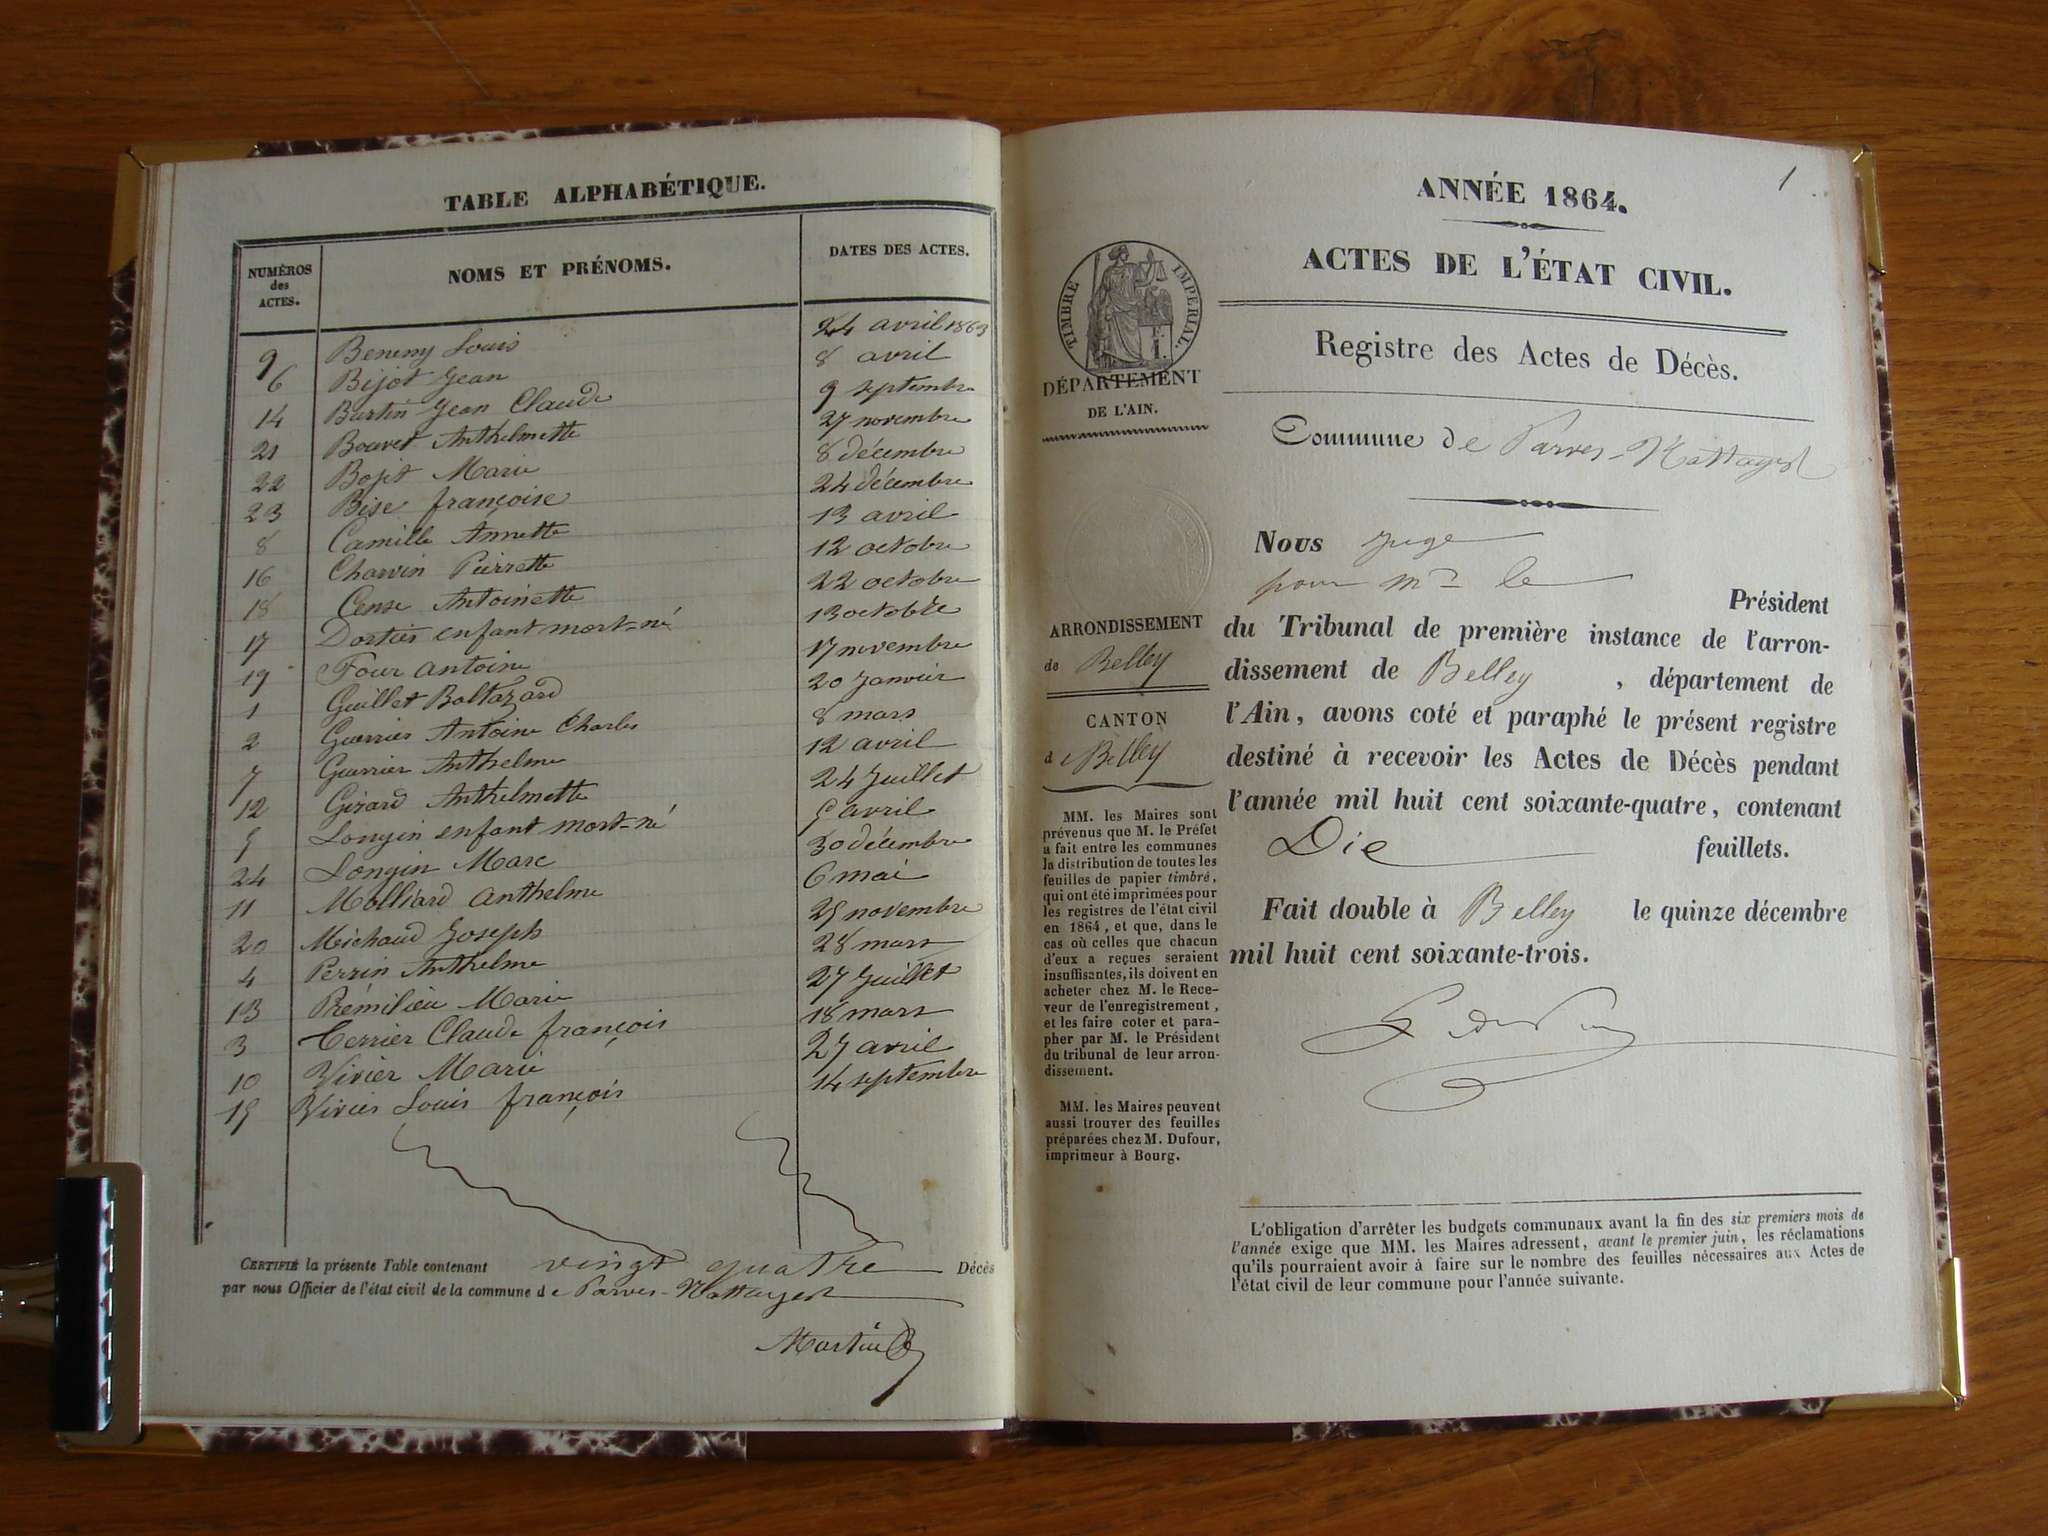 TABLE ALPHABÉTIQUE.
NUMÉROS des ACTES. NOMS ET PRÉNOMS. DATES DES ACTES.
9 Louis 24 avril 1863
6 Bijot Jean 8 avril
14 Burtin Jean Claude 9 septembre
21 Bouvet Anthelmette 27 novembre
22 Marie 8 décembre
23 Bise françoise 24 décembre
8 Camille Annette 13 avril
16 Charvin Pierrette 12 octobre
18 Cense Antoinette 22 octobre
17 Dortier enfant mort-né 13 octobre
19 Four antoine 17 novembre
1 Guillet Baltazard 20 Janvier
2 Guerrier Antoine Charles 8 mars
7 Guerrier Anthelme 12 avril
12 Girard Anthelmette 24 Juillet
5 Longin enfant mort-né 5 avril
24 Longin Marc 30 décembre
11 Molliard Anthelme 6 mai
20 Michaud Joseph 25 novembre
4 Perrin Anthelme 28 mars
13 Prémilieu Marie 27 Juillet
3 Terrier Claude françois 18 mars
10 Vivier Marie 27 avril
15 Vivier Louis françois 14 septembre
CERTIFIÉ la présente Table contenant vingt quatre Décès
par nous Officier de l'état civil de la commune de Parves-Nattages
Martin
1
ANNÉE 1864.
ACTES DE L'ÉTAT CIVIL.
Registre des Actes de Décès.
Commune de Parves-Nattages
TIMBRE IMPÉRIAL.
DÉPARTEMENT
DE L'AIN.
ARRONDISSEMENT
de Belley
CANTON
de Belley
MM. les Maires sont
prévenus que M. le Préfet
a fait entre les communes
la distribution de toutes les
feuilles de papier timbré,
qui ont été imprimées pour
les registres de l'état civil
en 1864, et que, dans le
cas où celles que chacun
d'eux a reçues seraient
insuffisantes, ils doivent en
acheter chez M. le Rece-
veur de l'enregistrement,
et les faire coter et para-
pher par M. le Président
du tribunal de leur arron-
dissement.
MM. les Maires peuvent
aussi trouver des feuilles
préparées chez M. Dufour,
imprimeur à Bourg.
Nous Juge
pour Mr le
Président
du Tribunal de première instance de l'arron-
dissement de Belley, département de
l'Ain, avons coté et paraphé le présent registre
destiné à recevoir les Actes de Décès pendant
l'année mil huit cent soixante-quatre, contenant
Dix feuillets.
Fait double à Belley le quinze décembre
mil huit cent soixante-trois.
L'obligation d'arrêter les budgets communaux avant la fin des six premiers mois de
l'année exige que MM. les Maires adressent, avant le premier juin, les réclamations
qu'ils pourraient avoir à faire sur le nombre des feuilles nécessaires aux Actes de
l'état civil de leur commune pour l'année suivante.